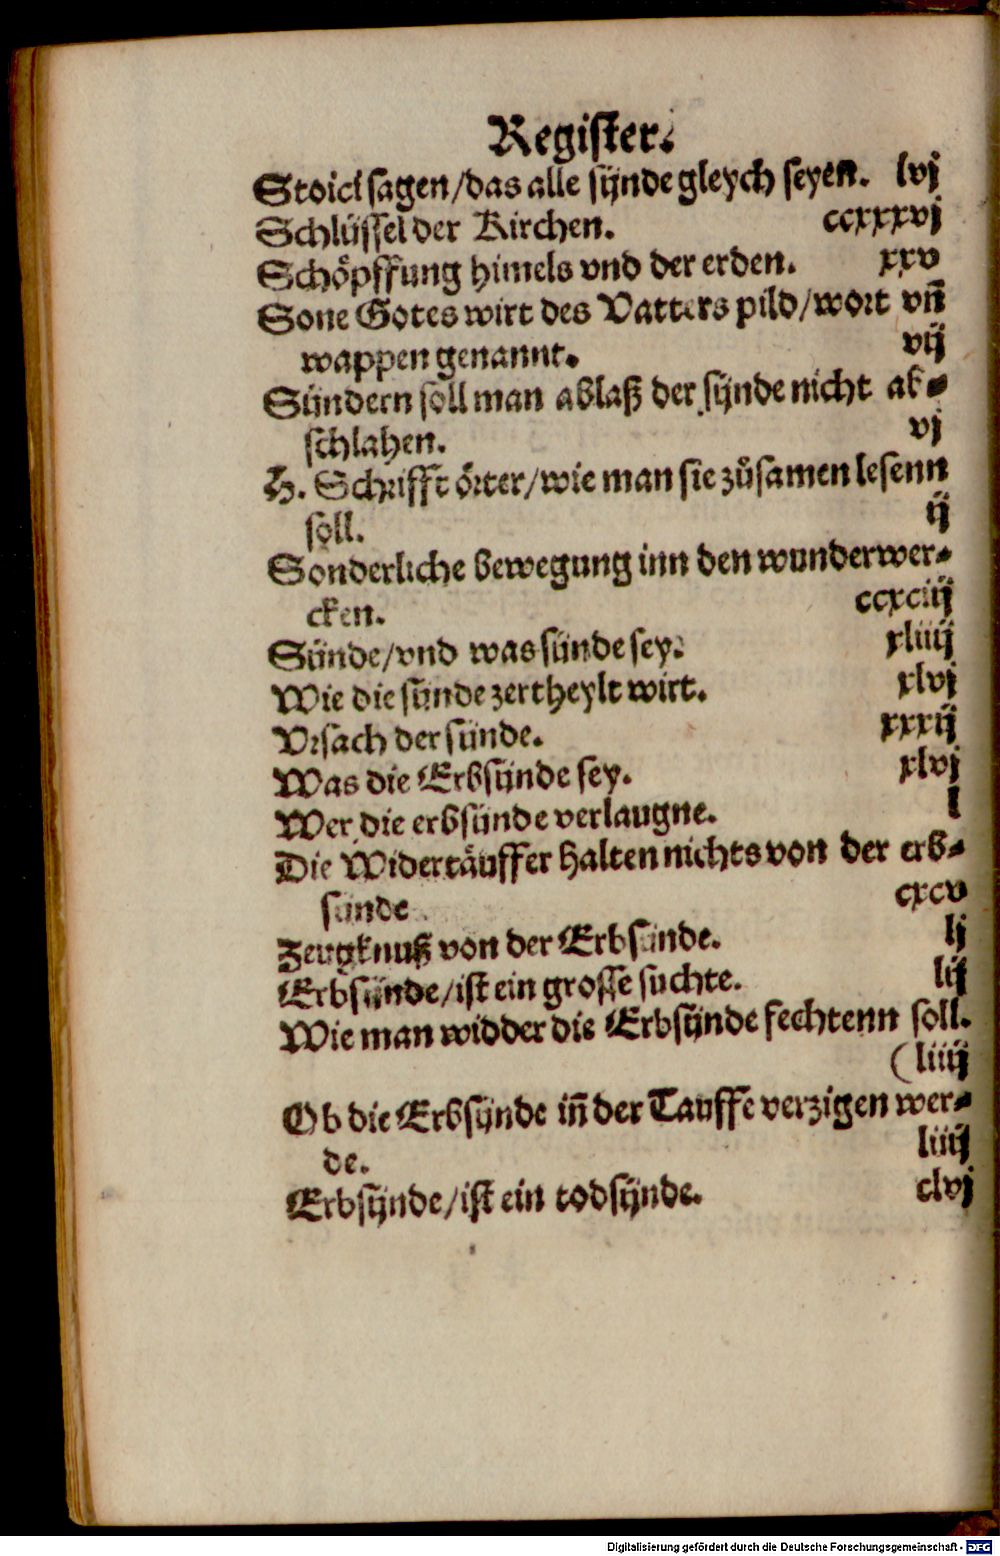 Register.
Stoici sagen/das alle sünde gleych seyen. lvj
Schlüssel der Kirchen. ccxxxvj
Schöpffung himels vnd der erden. xxv
Sone Gotes wirt des Vatters pild/wort vñ
wappen genannt. vij
Sündern soll man ablaß der sünde nicht ab-
schlahen. vj
H. Schrifft örter/wie man sie zůsamen lesenn
soll. ij
Sonderliche bewegung inn den wunderwer-
cken. ccxciij
Sünde/vnd was sünde sey. xliiij
Wie die sünde zertheylt wirt. xlvj
Vrsach der sünde. xxxij
Was die Erbsünde sey. xlvj
Wer die erbsünde verlaugne. l
Die Widertäuffer halten nichts von der erb-
sünde cxcv
Zeugknuß von der Erbsünde. lj
Erbsünde/ist ein grosse suchte. lij
Wie man widder die Erbsünde fechtenn soll.
(liiij
Ob die Erbsünde iñ der Tauffe verzigen wer-
de. liiij
Erbsünde/ist ein todsünde. clvj
Digitalisierung gefördert durch die Deutsche Forschungsgemeinschaft - DFG